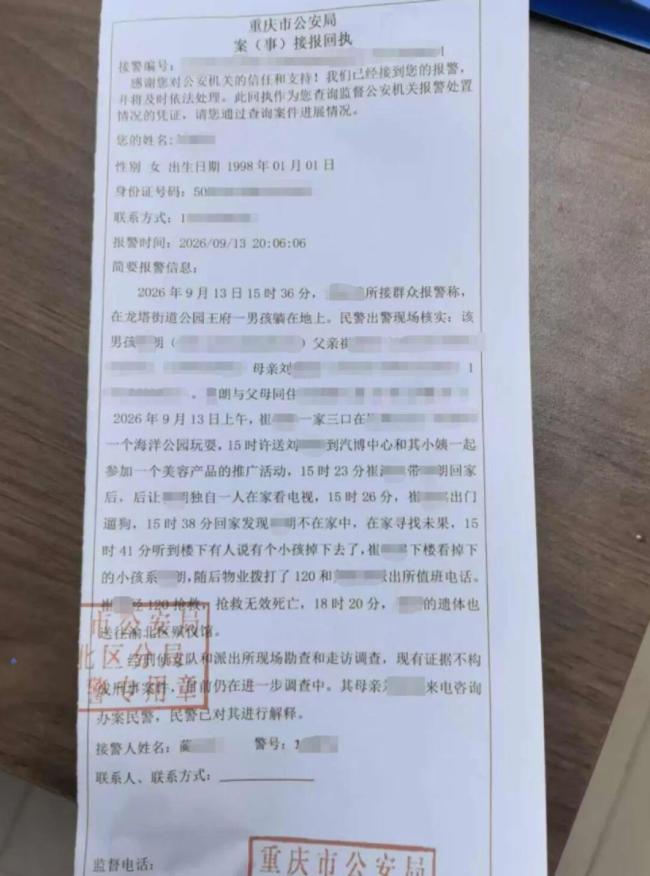 重庆市公安局
案（事）接报回执
接警编号：
感谢您对公安机关的信任和支持！我们已经接到您的报警，
并将及时依法处理。此回执作为您查询监督公安机关报警处置
情况的凭证，请您通过查询案件进展情况。
您的姓名:
性别 女 出生日期 1998年01月01日
身份证号码：50
联系方式：1
报警时间：2026/09/13 20:06:06
简要报警信息：
2026年9月13日15时36分，所接群众报警称，
在龙塔街道公园王府一男孩躺在地上。民警出警现场核实：该
男孩 朗（ ）父亲崔
母亲刘 1
。 朗与父母同住
2026年9月13日上午，崔 一家三口在
一个海洋公园玩耍，15时许送刘 到汽博中心和其小姨一起
参加一个美容产品的推广活动，15时23分崔 带 朗回家
后，后让 朗独自一人在家看电视，15时26分，崔 出门
遛狗，15时38分回家发现 朗不在家中，在家寻找未果，15
时41分听到楼下有人说有个小孩掉下去了，崔 下楼看掉下
的小孩系 朗，随后物业拨打了120和 派出所值班电话。
崔 经120抢救，抢救无效死亡，18时20分， 的遗体也
送往渝北区殡仪馆。
经刑侦支队和派出所现场勘查和走访调查，现有证据不构
成刑事案件，目前仍在进一步调查中。其母亲 来电咨询
办案民警，民警已对其进行解释。
市公安局
北区分局
警专用章
接警人姓名：蔺 警号：
联系人、联系方式：
监督电话：
重庆市公安局